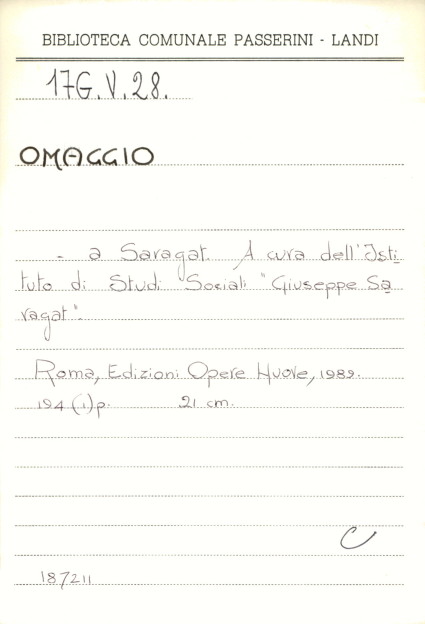 BIBLIOTECA COMUNALE PASSERINI - LANDI
17G.V.28.
OMAGGIO
- a Saragat. A cura dell'Isti-
tuto di Studi Sociali "Giuseppe Sa-
ragat".
Roma, Edizioni Opere Nuove, 1989.
194 (1) p. 21 cm.
C
187211